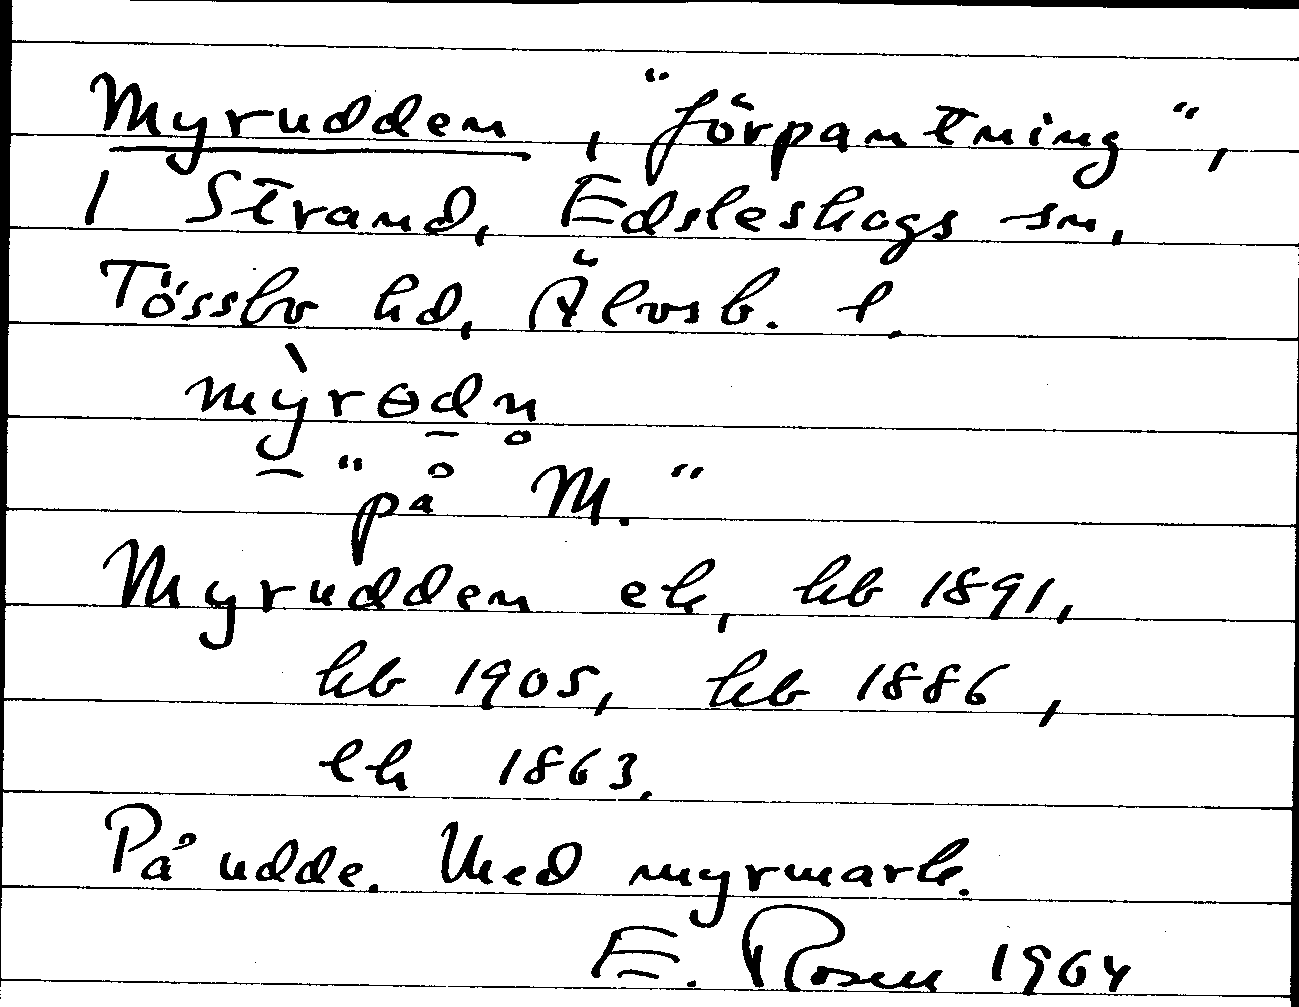 Myrudden, "förpantning",
1 Strand, Edsleskogs sn,
Tössbo hd, Älvsb. l.
mỳ̱rɵḏn̥
"på M."
Myrudden ek, kb 1891,
kb 1905, kb 1886,
lh 1863.
På udde. Med myrmark.
E. Rosen 1964